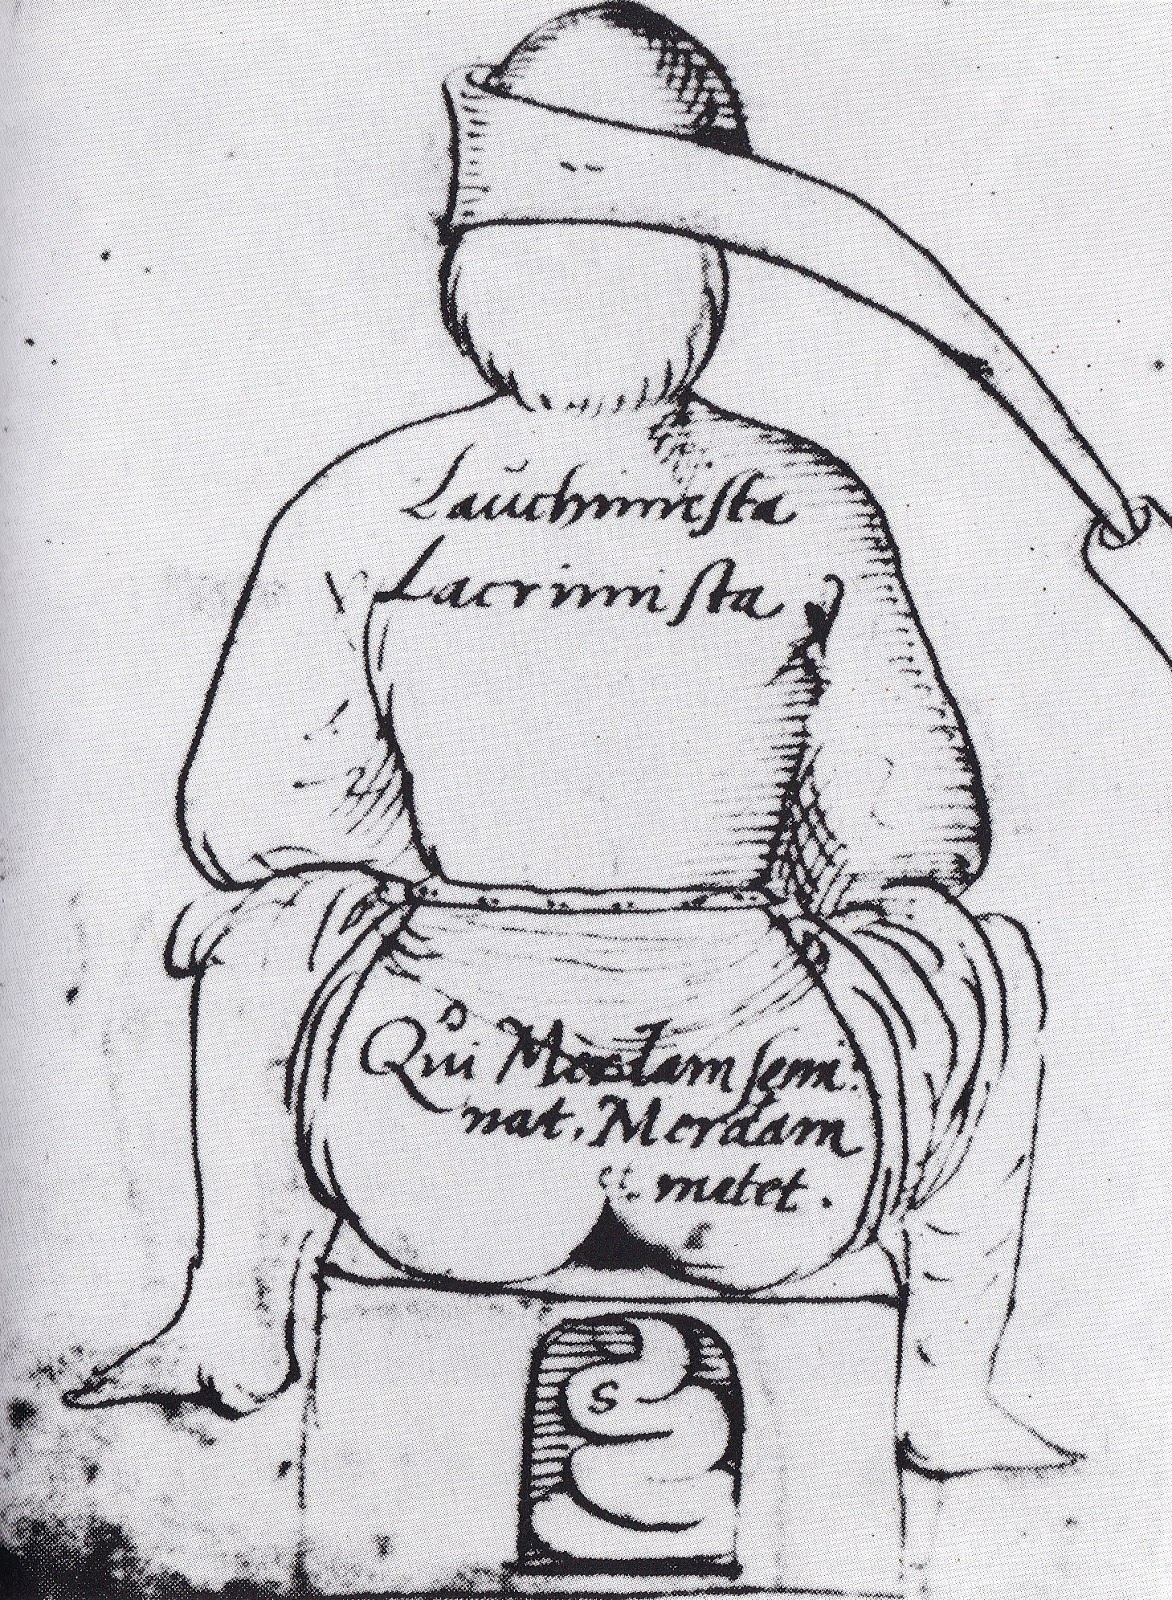 Laŭchimesta
Lacrimista
Qui Merdam semi:
nat, Merdam
metet.
S